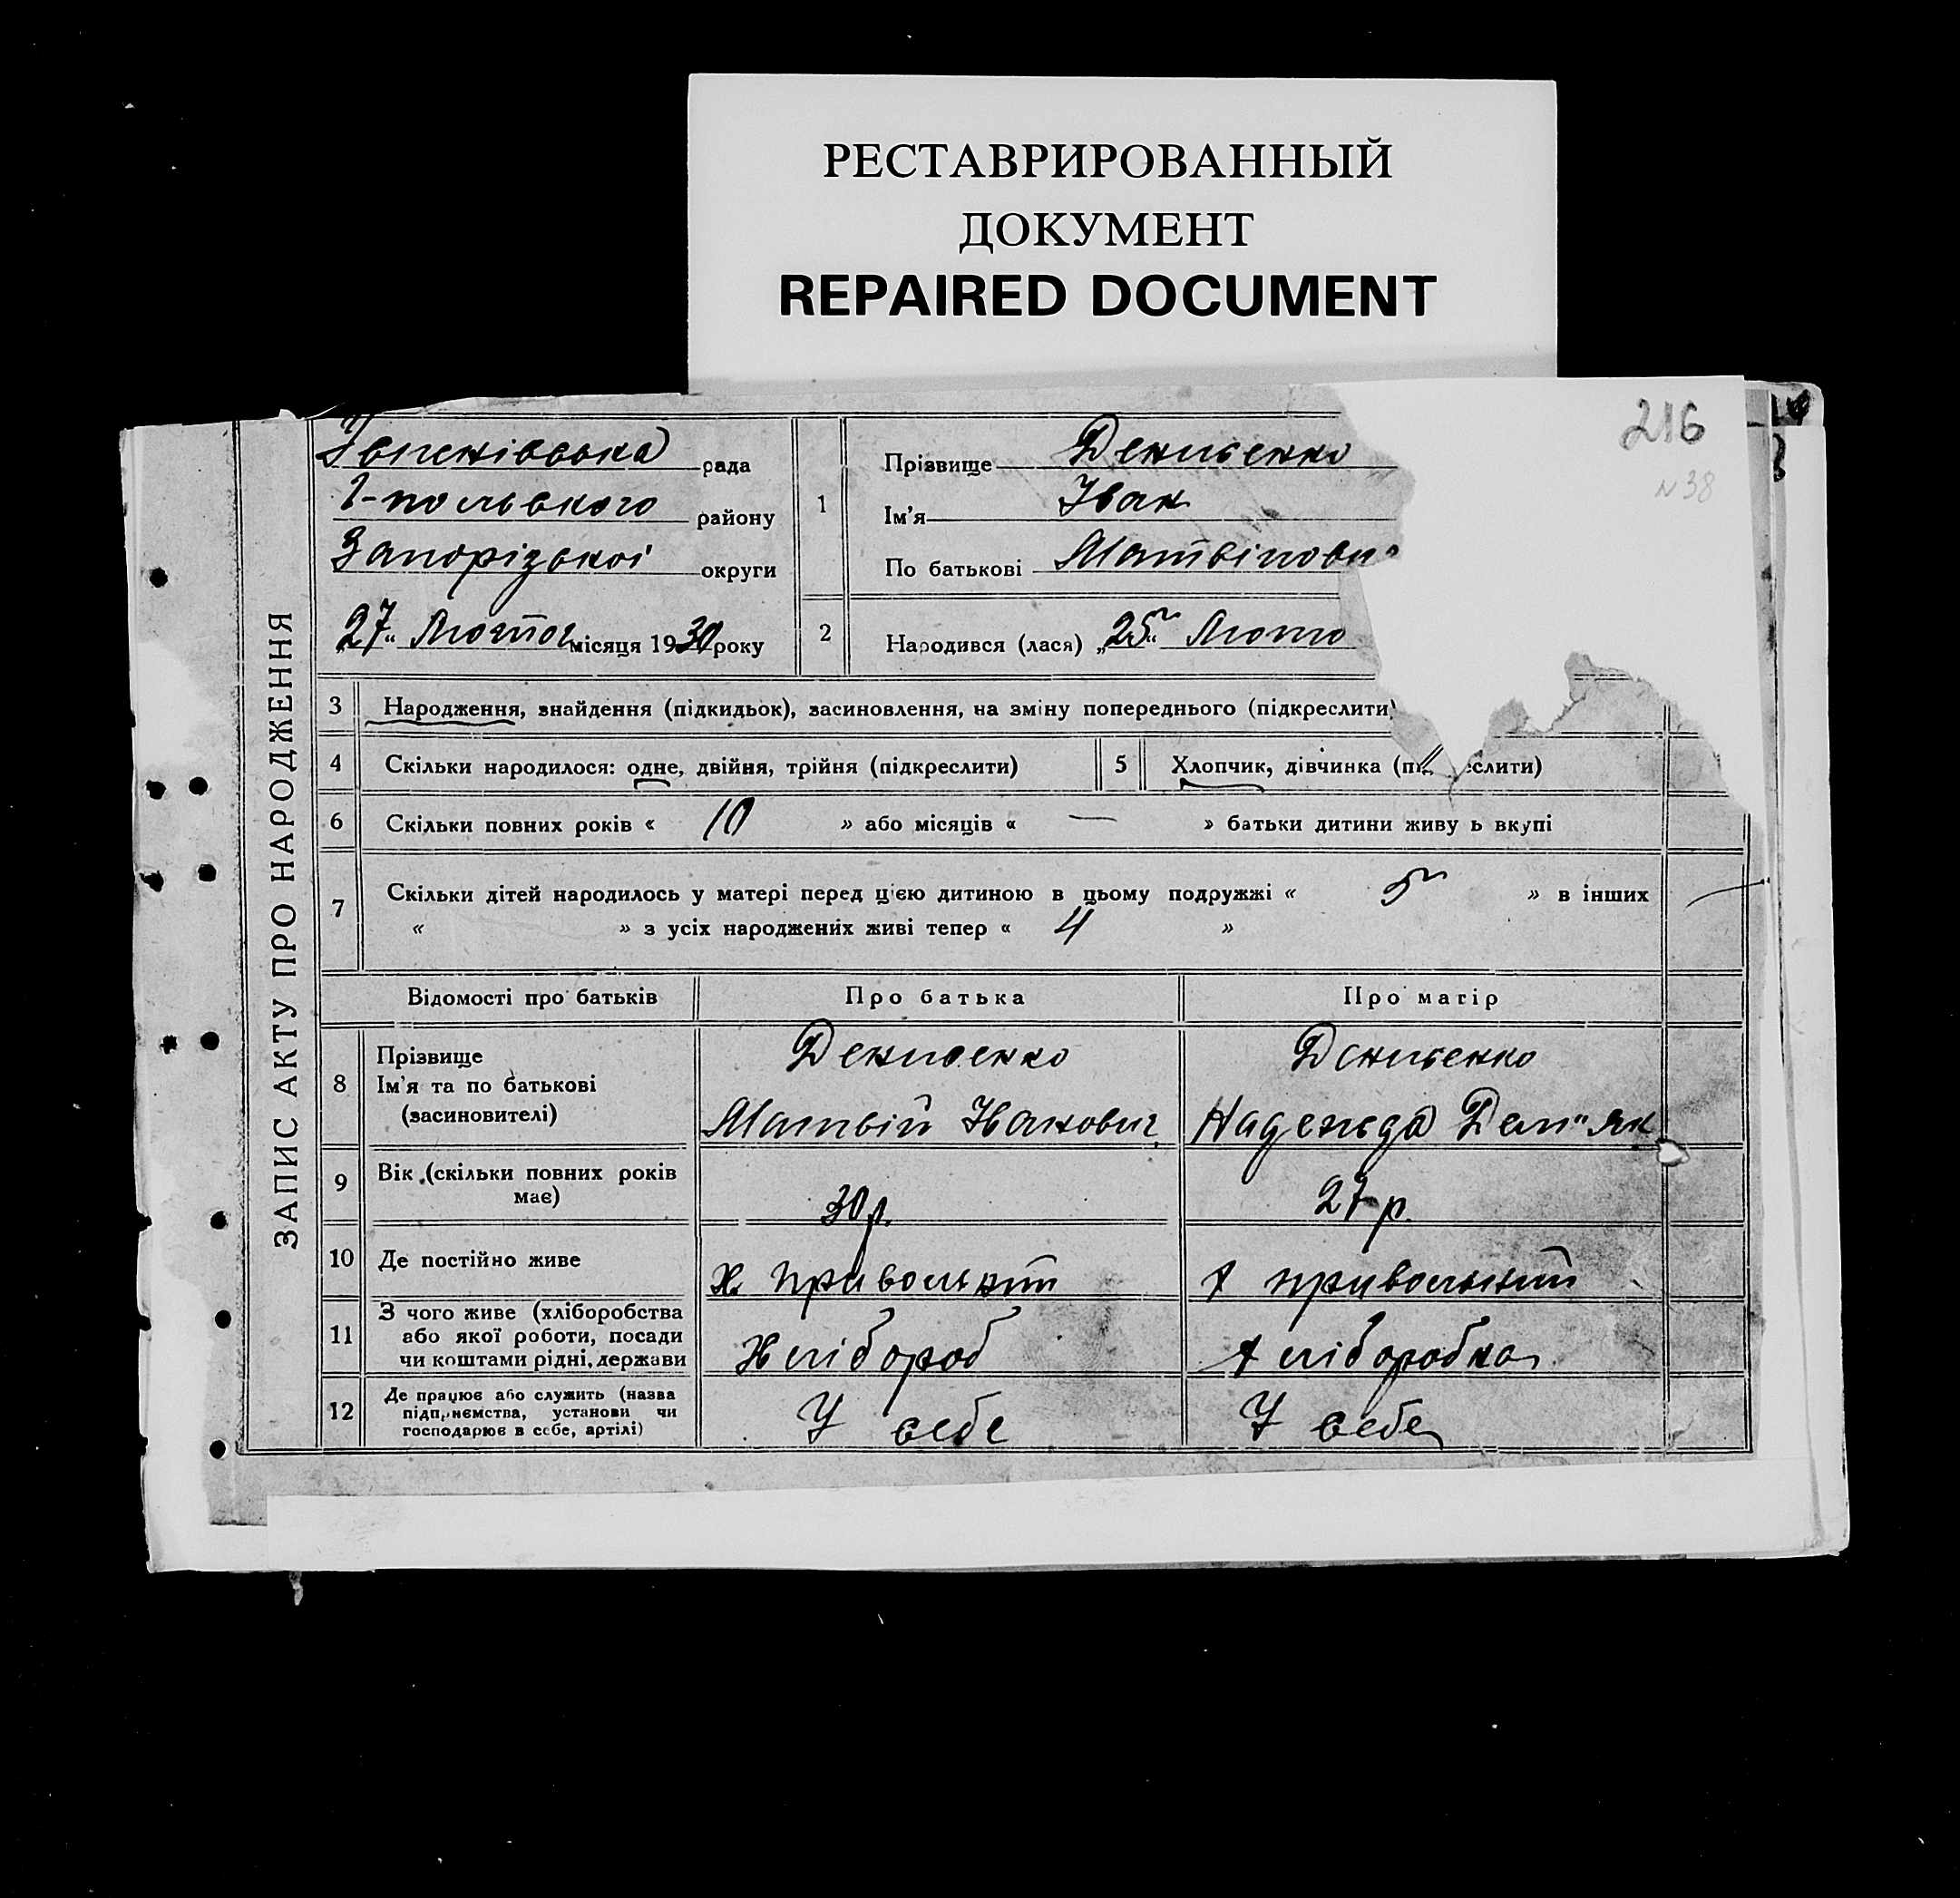 РЕСТАВРИРОВАННЫЙ
ДОКУМЕНТ
REPAIRED DOCUMENT
216
N 38
ЗАПИС АКТУ ПРО НАРОДЖЕННЯ
рада
Г-польського району
Запорізької округи
„27“ Лютого місяця 1930 року
1 Прізвище Денисенко
Ім'я Іван
По батькові Матвійови
2 Народився (лася) „25“ Люто
3 Народження, знайдення (підкидьок), засиновлення, на зміну попереднього (підкреслити)
4 Скільки народилося: одне, двійня, трійня (підкреслити) 5 Хлопчик, дівчинка (під еслити)
6 Скільки повних років « 10 » або місяців « — » батьки дитини живу ь вкупі
7 Скільки дітей народилось у матері перед цією дитиною в цьому подружжі « 5 » в інших
« » з усіх народжених живі тепер « 4 »
Відомості про батьків Про батька Про матір
8 Прізвище Денисенко Денисенко
Ім'я та по батькові
(засиновителі) Матвій Іванович Надежда Дем"ян
9 Вік (скільки повних років
має) 30 р. 27 р.
10 Де постійно живе Х. Привольний Х Привольний
11 З чого живе (хліборобства
або якої роботи, посади
чи коштами рідні, держави Хлібороб Хліборобка
12 Де працює або служить (назва
підприємства, установи чи
господарює в себе, артілі) У себе У себе